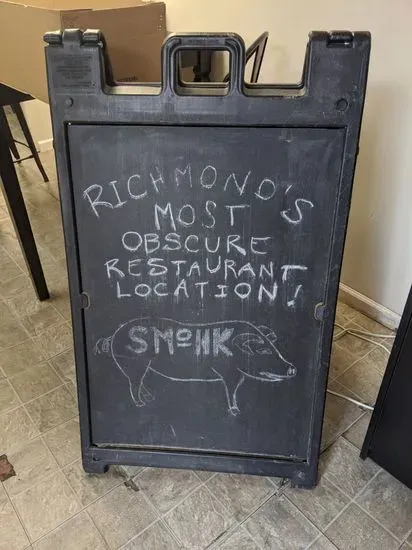 RICHMOND'S
MOST
OBSCURE
RESTAURANT
LOCATION!
SMOHK